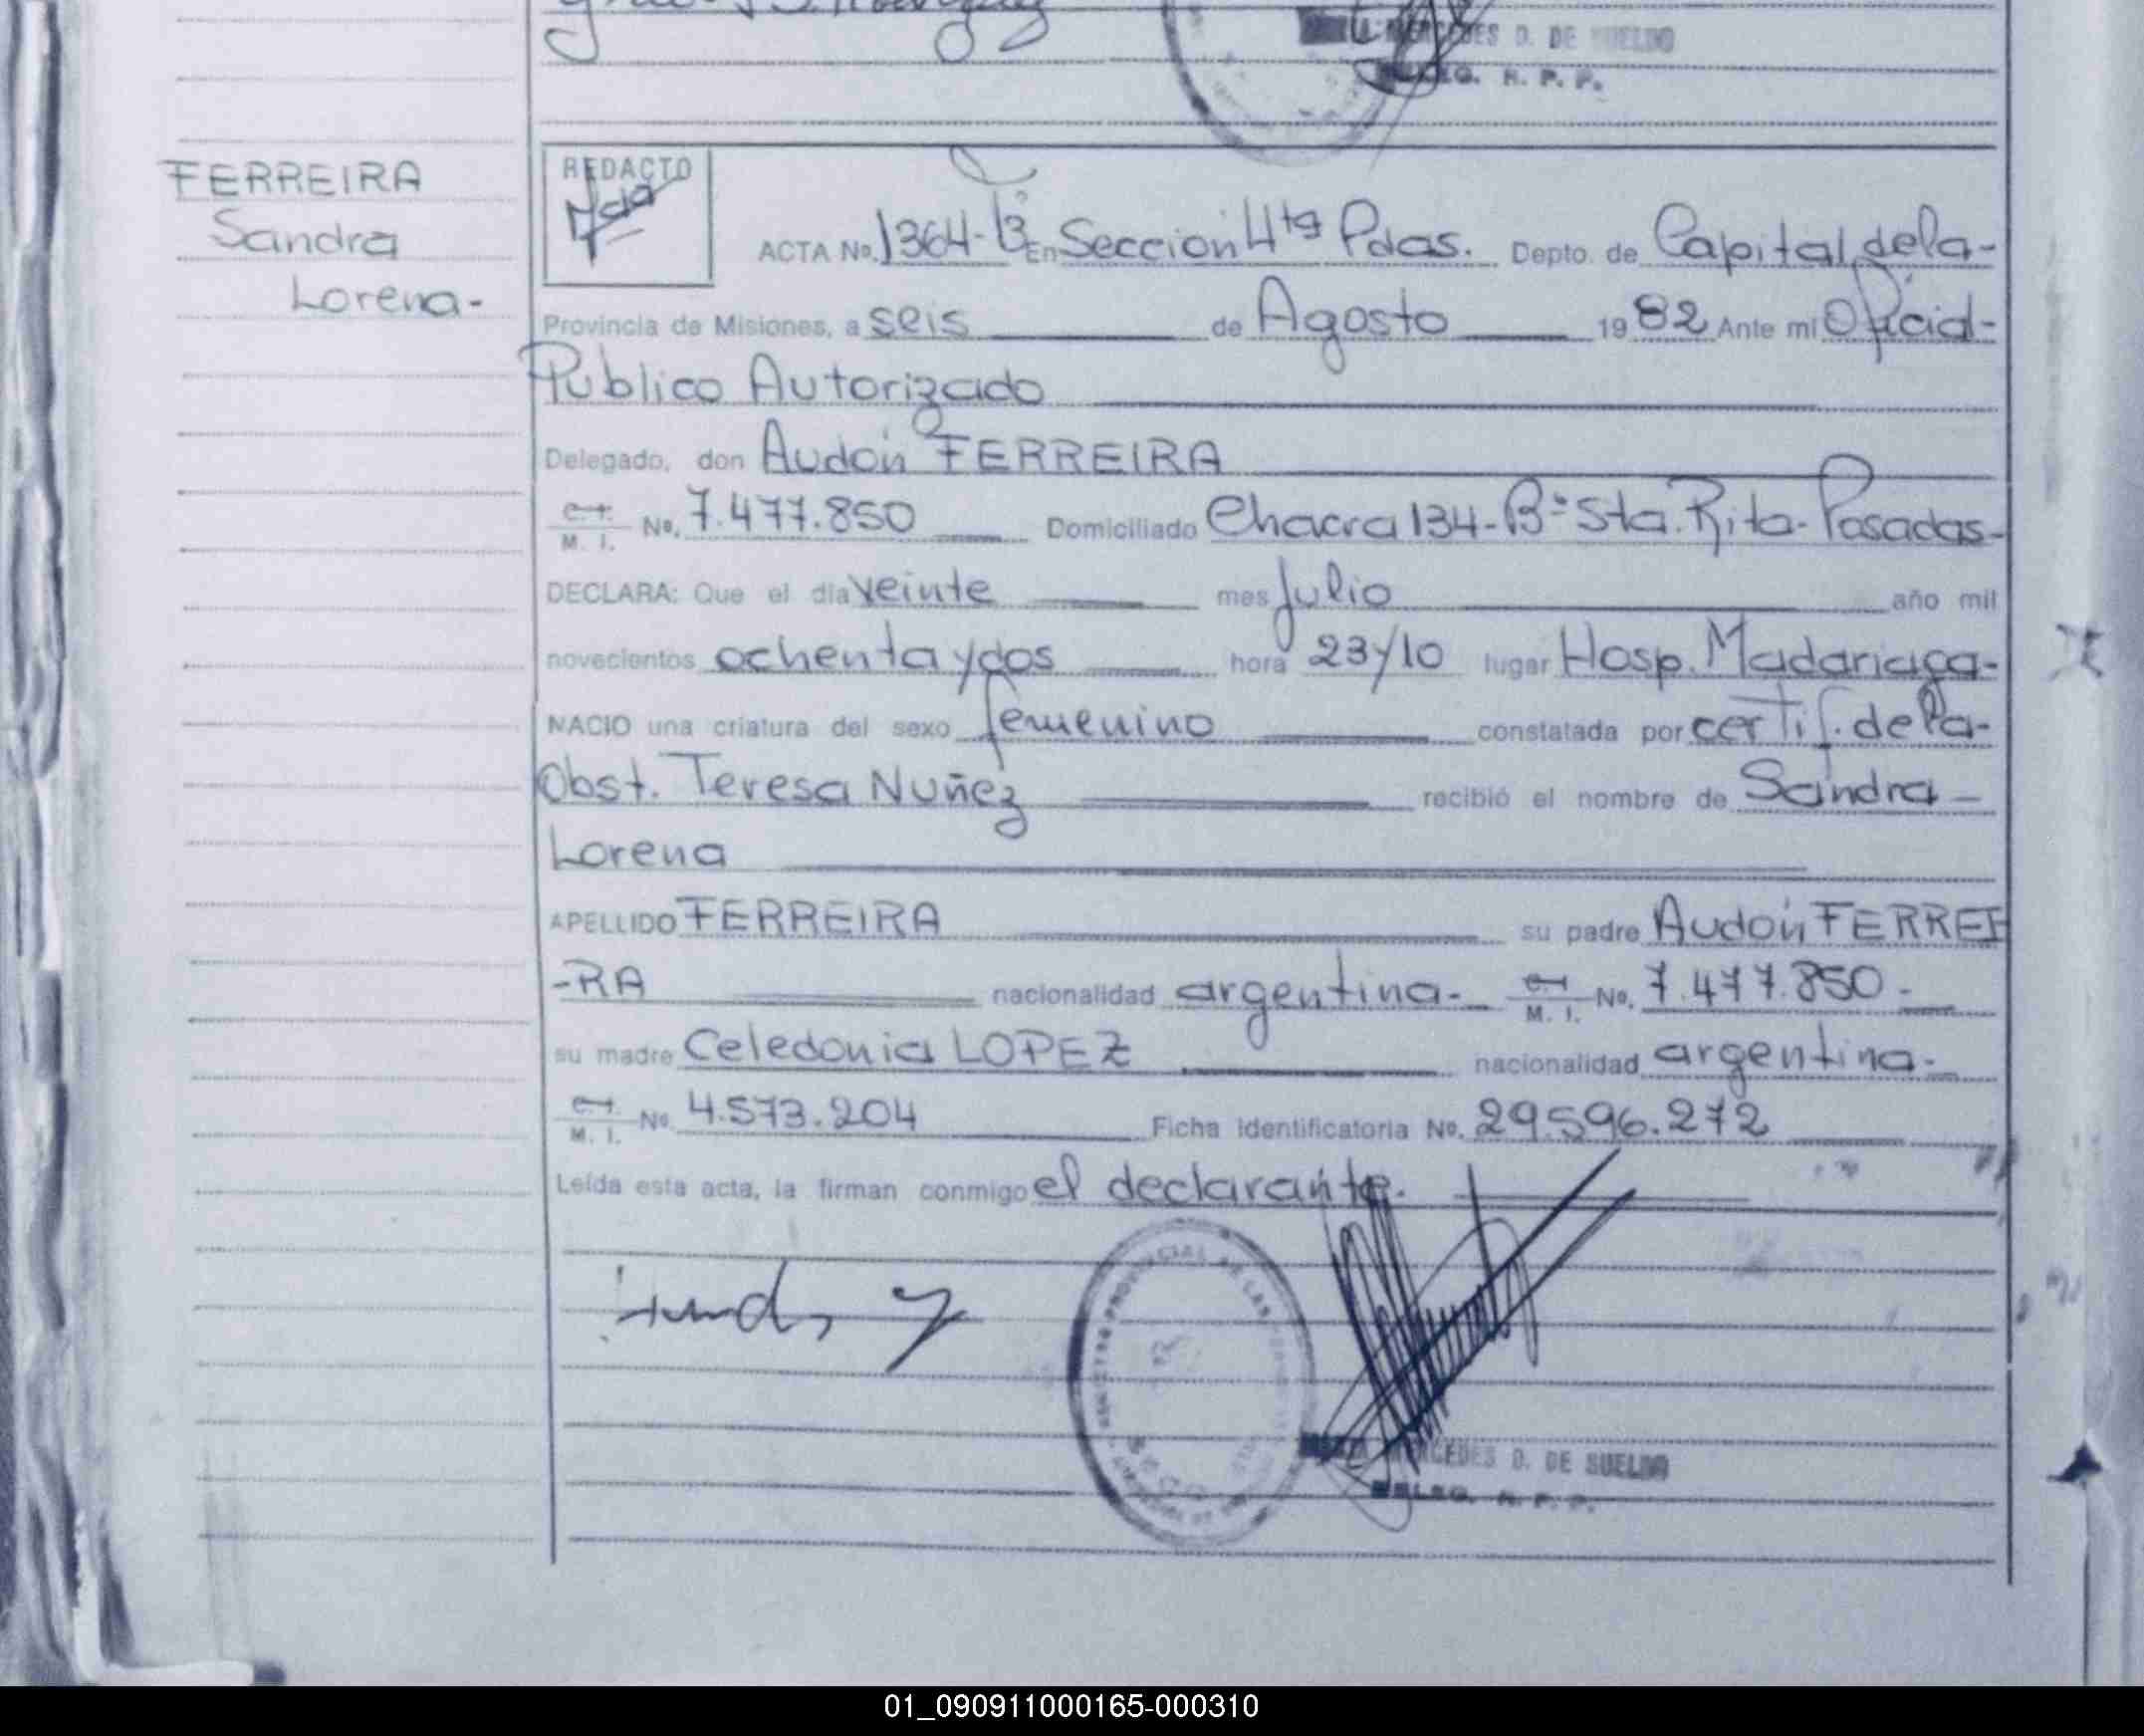 D. DE SUELDO
R. P. P.
FERREIRA
Sandra
Lorena-
REDACTO
ACTA No. 1364-Bº En Seccion 4ta Pdas. Depto. de Capital, de la-
Provincia de Misiones, a seis de Agosto 1982 Ante mi Oficial-
Publico Autorizado
Delegado, don Audón FERREIRA
M. I. No. 7.477.850 Domiciliado Chacra 134-Bº Sta. Rita- Posadas-
DECLARA: Que el día veinte mes Julio año mil
novecientos ochenta y dos hora 23 y 10 lugar Hosp. Madariaga-
NACIO una criatura del sexo femenino constatada por certif. de la-
Obst. Teresa Nuñez recibió el nombre de Sandra-
Lorena
APELLIDO FERREIRA su padre Audón FERREI
-RA nacionalidad argentina- M. I. No. 7.477.850-
su madre Celedonia LOPEZ nacionalidad argentina-
M. I. No. 4.573.204 Ficha Identificatoria No. 29.596.272
Leída esta acta, la firman conmigo el declarante.
MERCEDES D. DE SUELDO
DELEG. R. P. P.
01_090911000165-000310